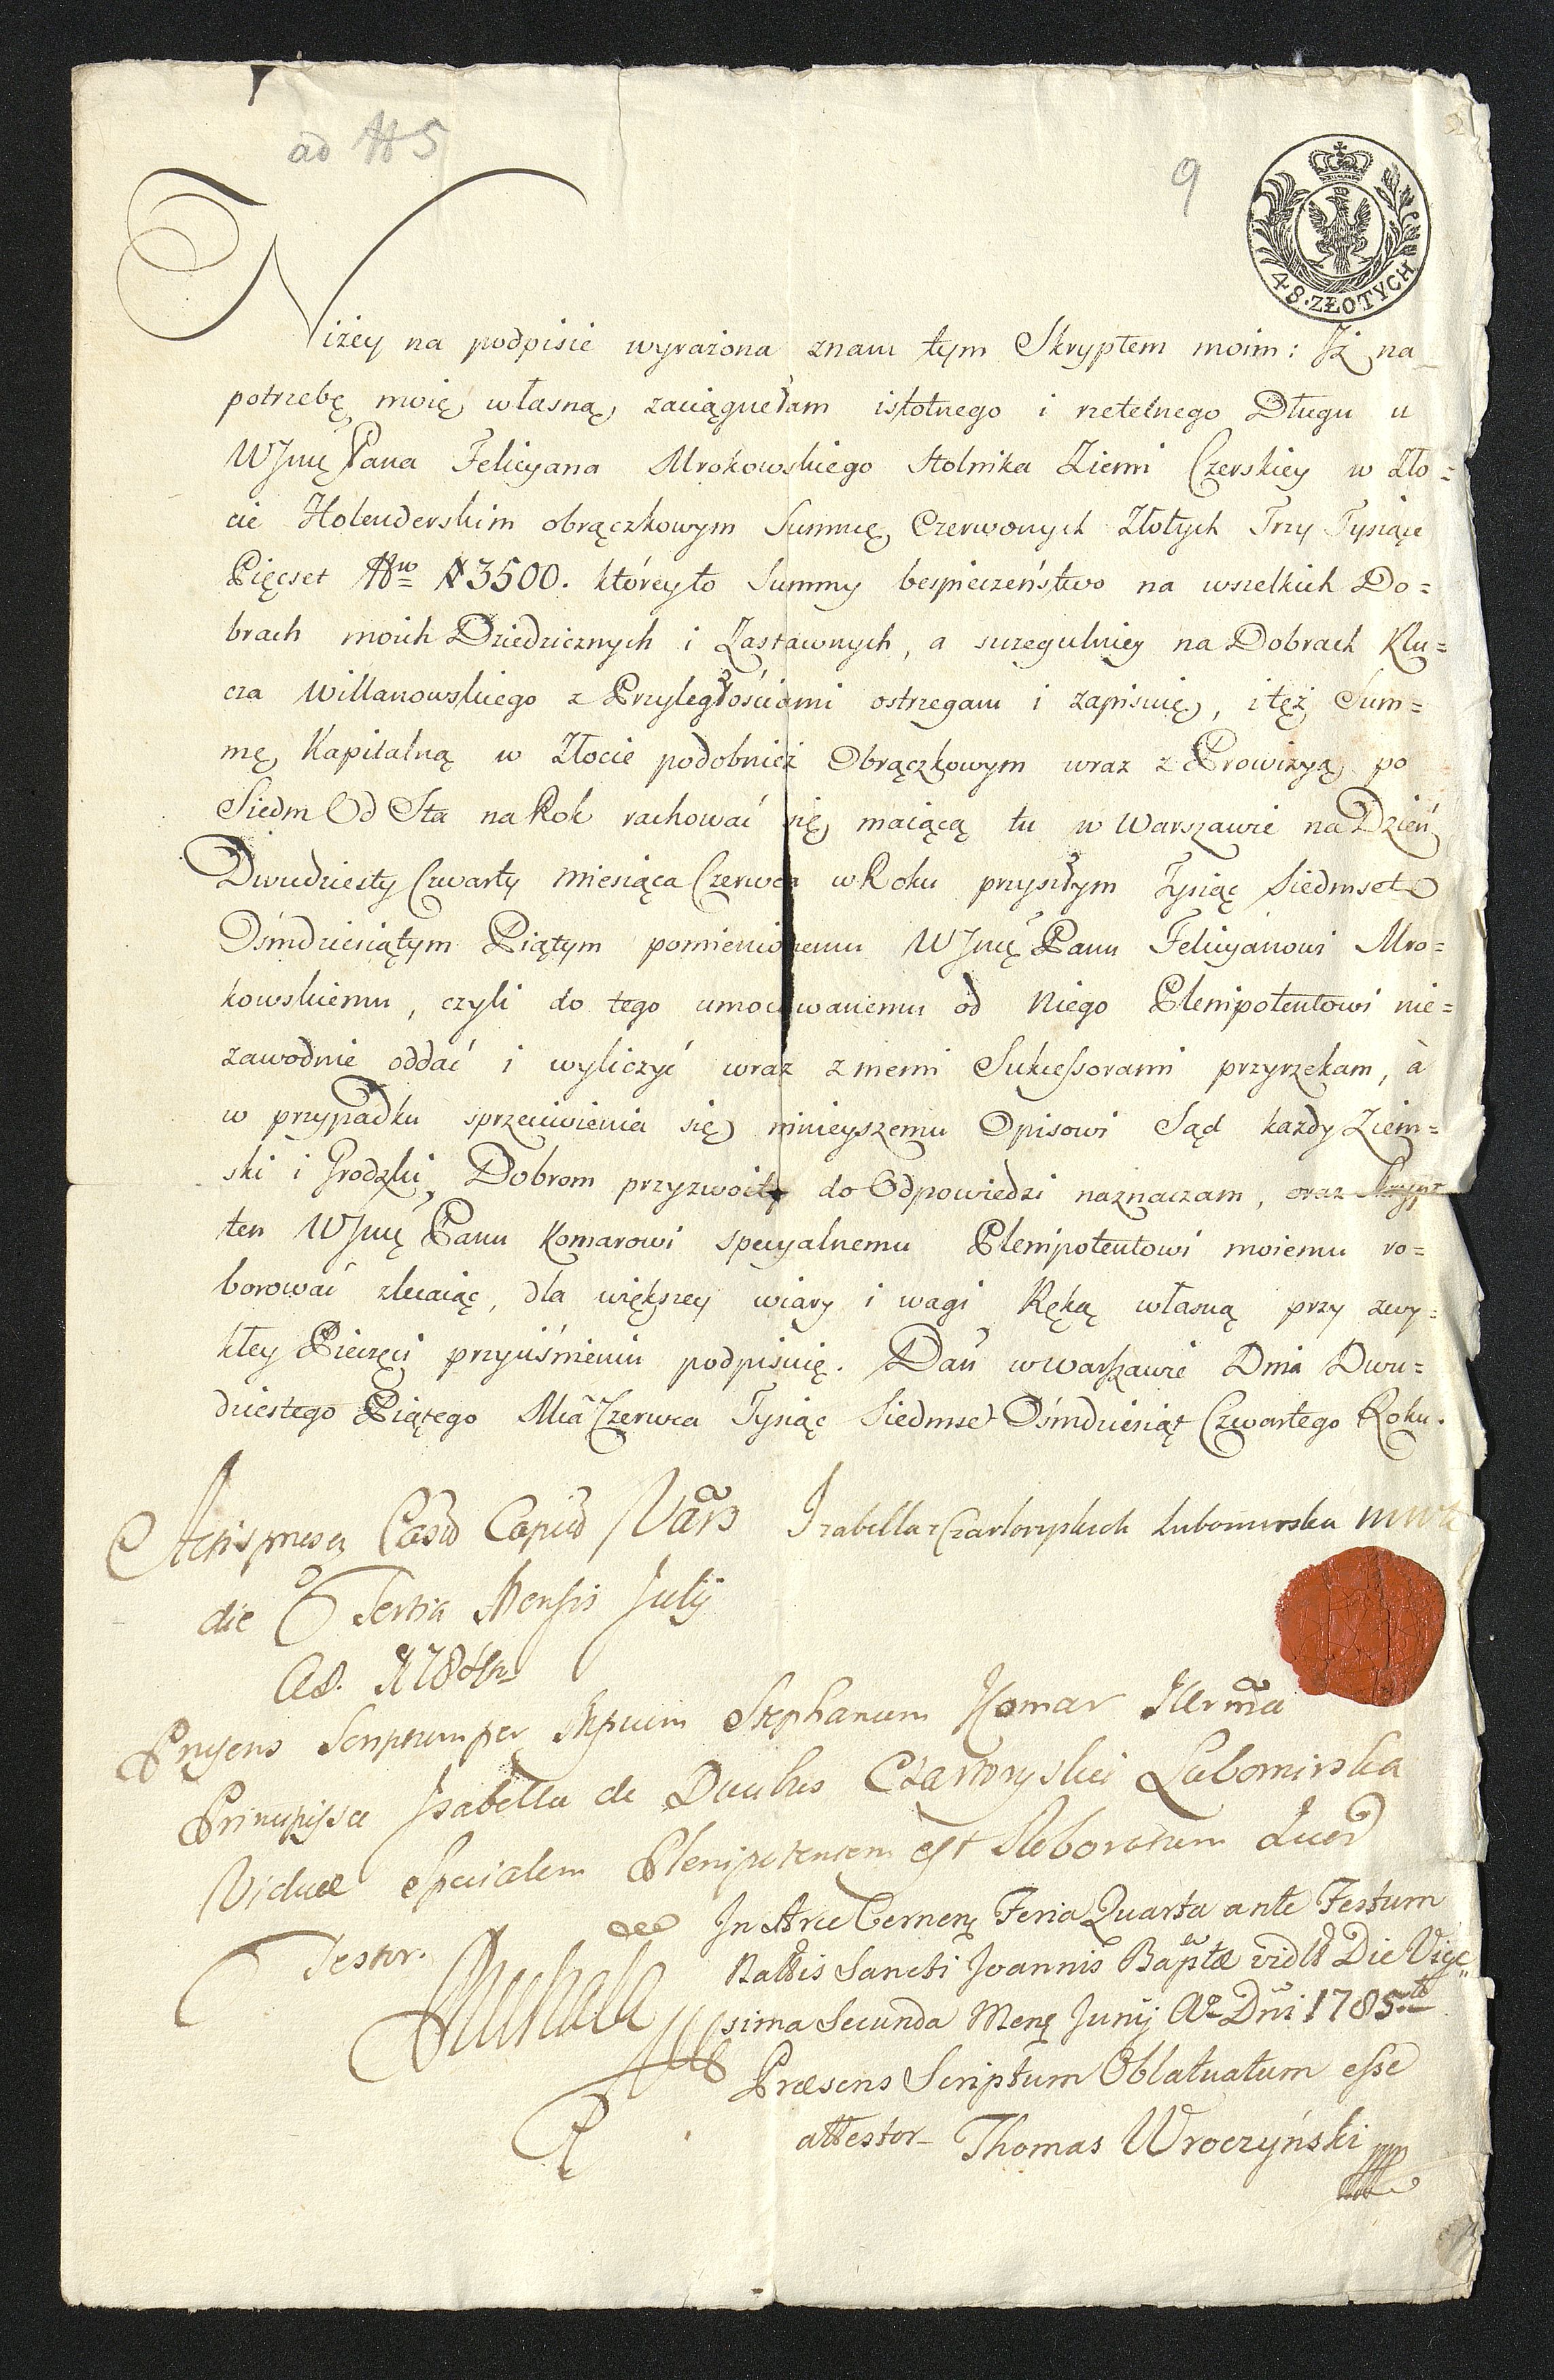 ad # 5
9
48. ZŁOTYCH
Niżey na podpisie wyrażona znam tym Skryptem moim: Jż na
potrzebę moię własną zaciągnełam istotnego i rzetelnego Długu u
WJmę Pana Felicyana Mrokowskiego Stolnika Ziemi Czerskiey w Zło=
cie Holenderskim obrączkowym Summę Czerwonych Złotych Trzy Tysiące
Pięcset 3500. któreyto Summy bespieczeństwo na wszelkich Do=
brach moich Dziedzicznych i Zastawnych, a szczegulniey na Dobrach Klu=
cza Willanowskiego z Przyległościami ostrzegam i zapisuię, i tęż Sum=
mę Kapitalną w Złocie podobnież Obrączkowym wraz z Prowizyą po
Siedm Od Sta na Rok rachować się maiącą tu w Warszawie na Dzień
Dwudziesty Czwarty Miesiąca Czerwca w Roku przyszłym Tysiąc Siedmset
Ośmdziesiątym Piątym pomienionemu WJmę Panu Felicyanowi Mro=
kowskiemu, czyli do tego umocowanemu od Niego Plenipotentowi nie=
zawodnie oddać i wyliczyć wraz z memi Sukcessorami przyrzekam, à
w przypadku sprzeciwienia się ninieyszemu Opisowi Sąd każdy Ziem=
ski i Grodzki, Dobrom przyzwoity do Odpowiedzi naznaczam, oraz Skrypt
ten WJmę Panu Komarowi specyalnemu Plenipotentowi moiemu ro=
borować zlecaiąc, dla większey wiary i wagi Ręką własną przy zwy=
kłey Pieczęci przyciśnieniu podpisuię. Dań w Warszawie Dnia Dwu=
dziestego Piątego Mca Czerwca Tysiąc Siedmset Ośmdziesiąt Czwartego Roku.
Izabella z Czartoryskich Lubomirska mwp
Capid Vars
die Tertia Mensis Julij
1784
Scriptum per Stephanum Komar
Principissa Isabella de Ducibus Czartoryskie Lubomirska
Viduae specialem Plenipotentem est Roboratum
Testor.
In Arce Cernen Feria Quarta ante Festum
Nattis Sancti Joannis Baptae vidlt Die Vige
sima Secunda Mens Junij Ao Dni 1785to
Præsens Scriptum Oblatuatum esse
attestor Thomas Wroczyński